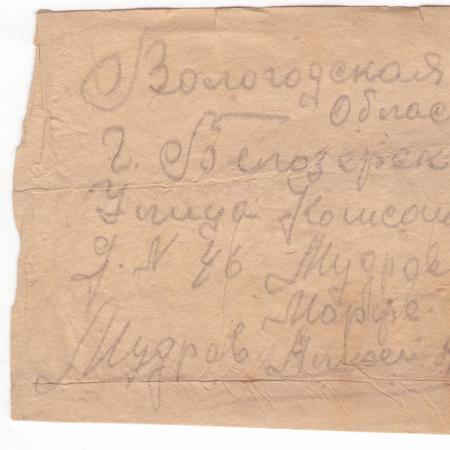 Вологодская
Облас
г. Белозерск
Улица Комсом
д. N 46 Мудров
Марие.
Мудров